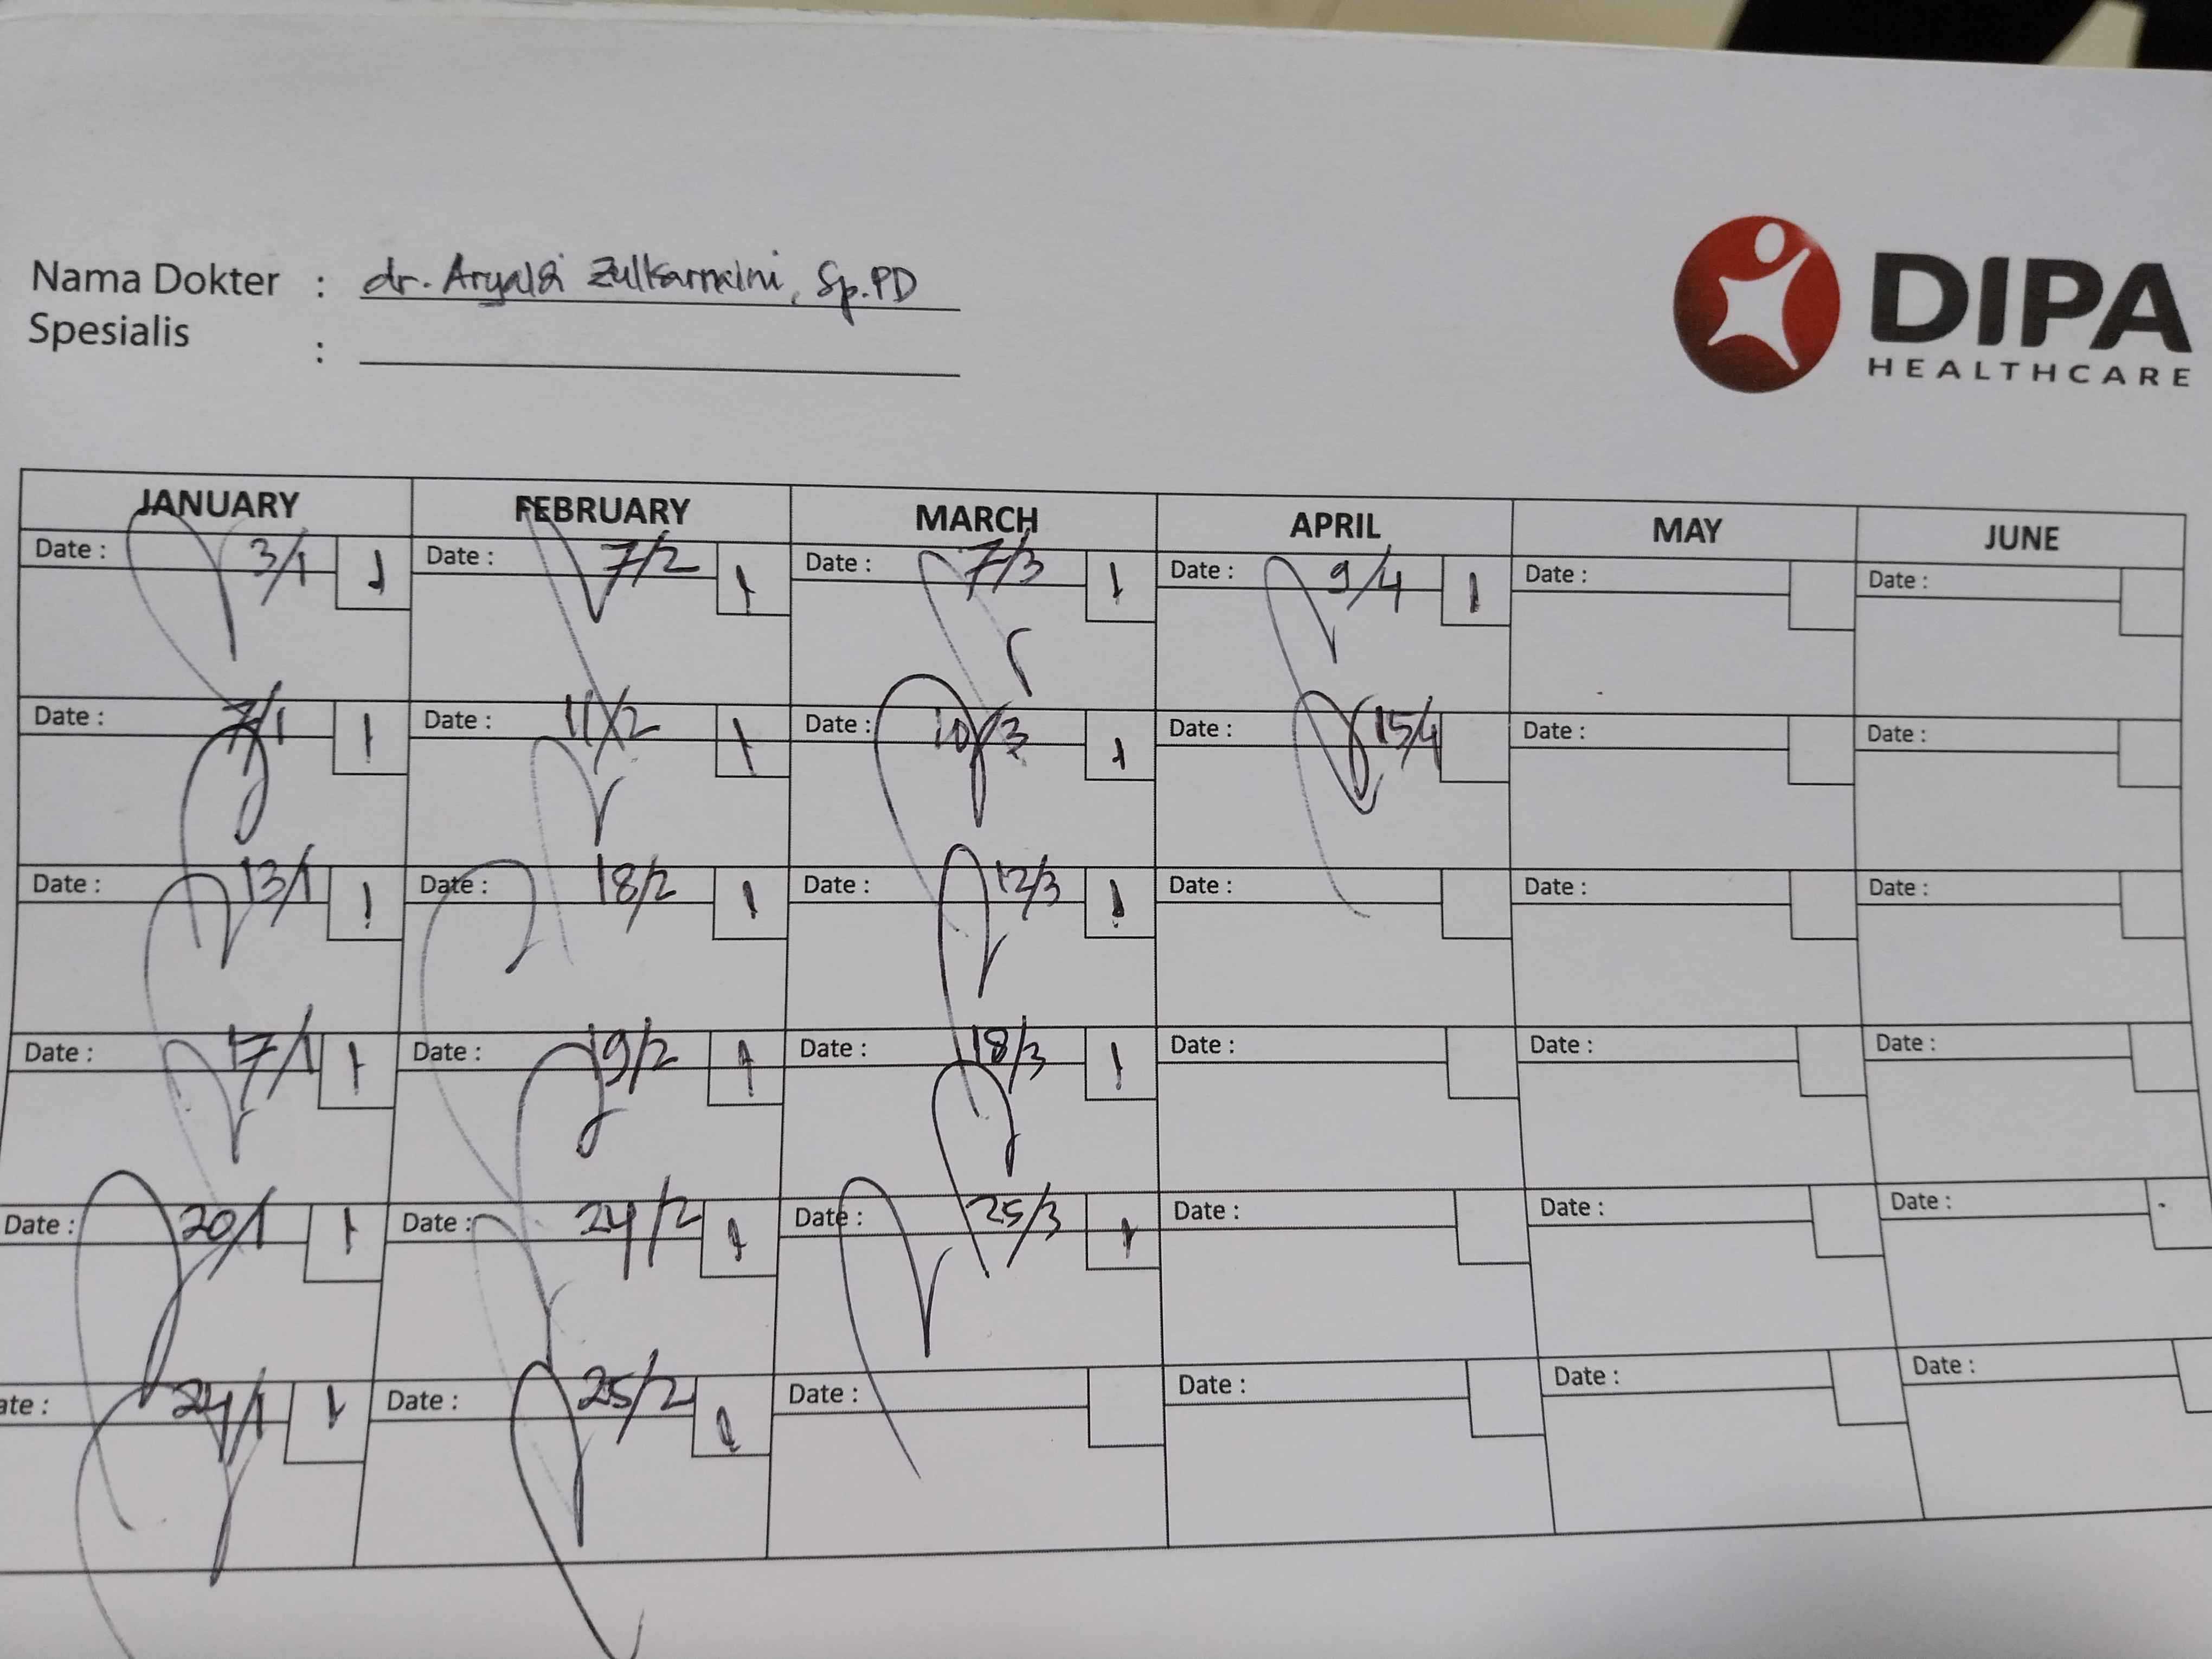 DIPA
HEALTHCARE
Nama Dokter : dr. Aryaldi Zulkarnaini, Sp.PD
Spesialis :
JANUARY FEBRUARY MARCH APRIL MAY JUNE
Date : 3/1 1 Date : 7/2 1 Date : 7/3 1 Date : 9/4 1 Date : Date :
Date : 7/1 1 Date : 11/2 1 Date : 10/3 1 Date : 15/4 Date : Date :
Date : 13/1 1 Date : 18/2 1 Date : 12/3 1 Date : Date : Date :
Date : 17/1 1 Date : 19/2 1 Date : 18/3 1 Date : Date : Date :
Date : 20/1 1 Date : 24/2 1 Date : 25/3 1 Date : Date : Date :
ate : 24/1 1 Date : 25/2 1 Date : Date : Date : Date :